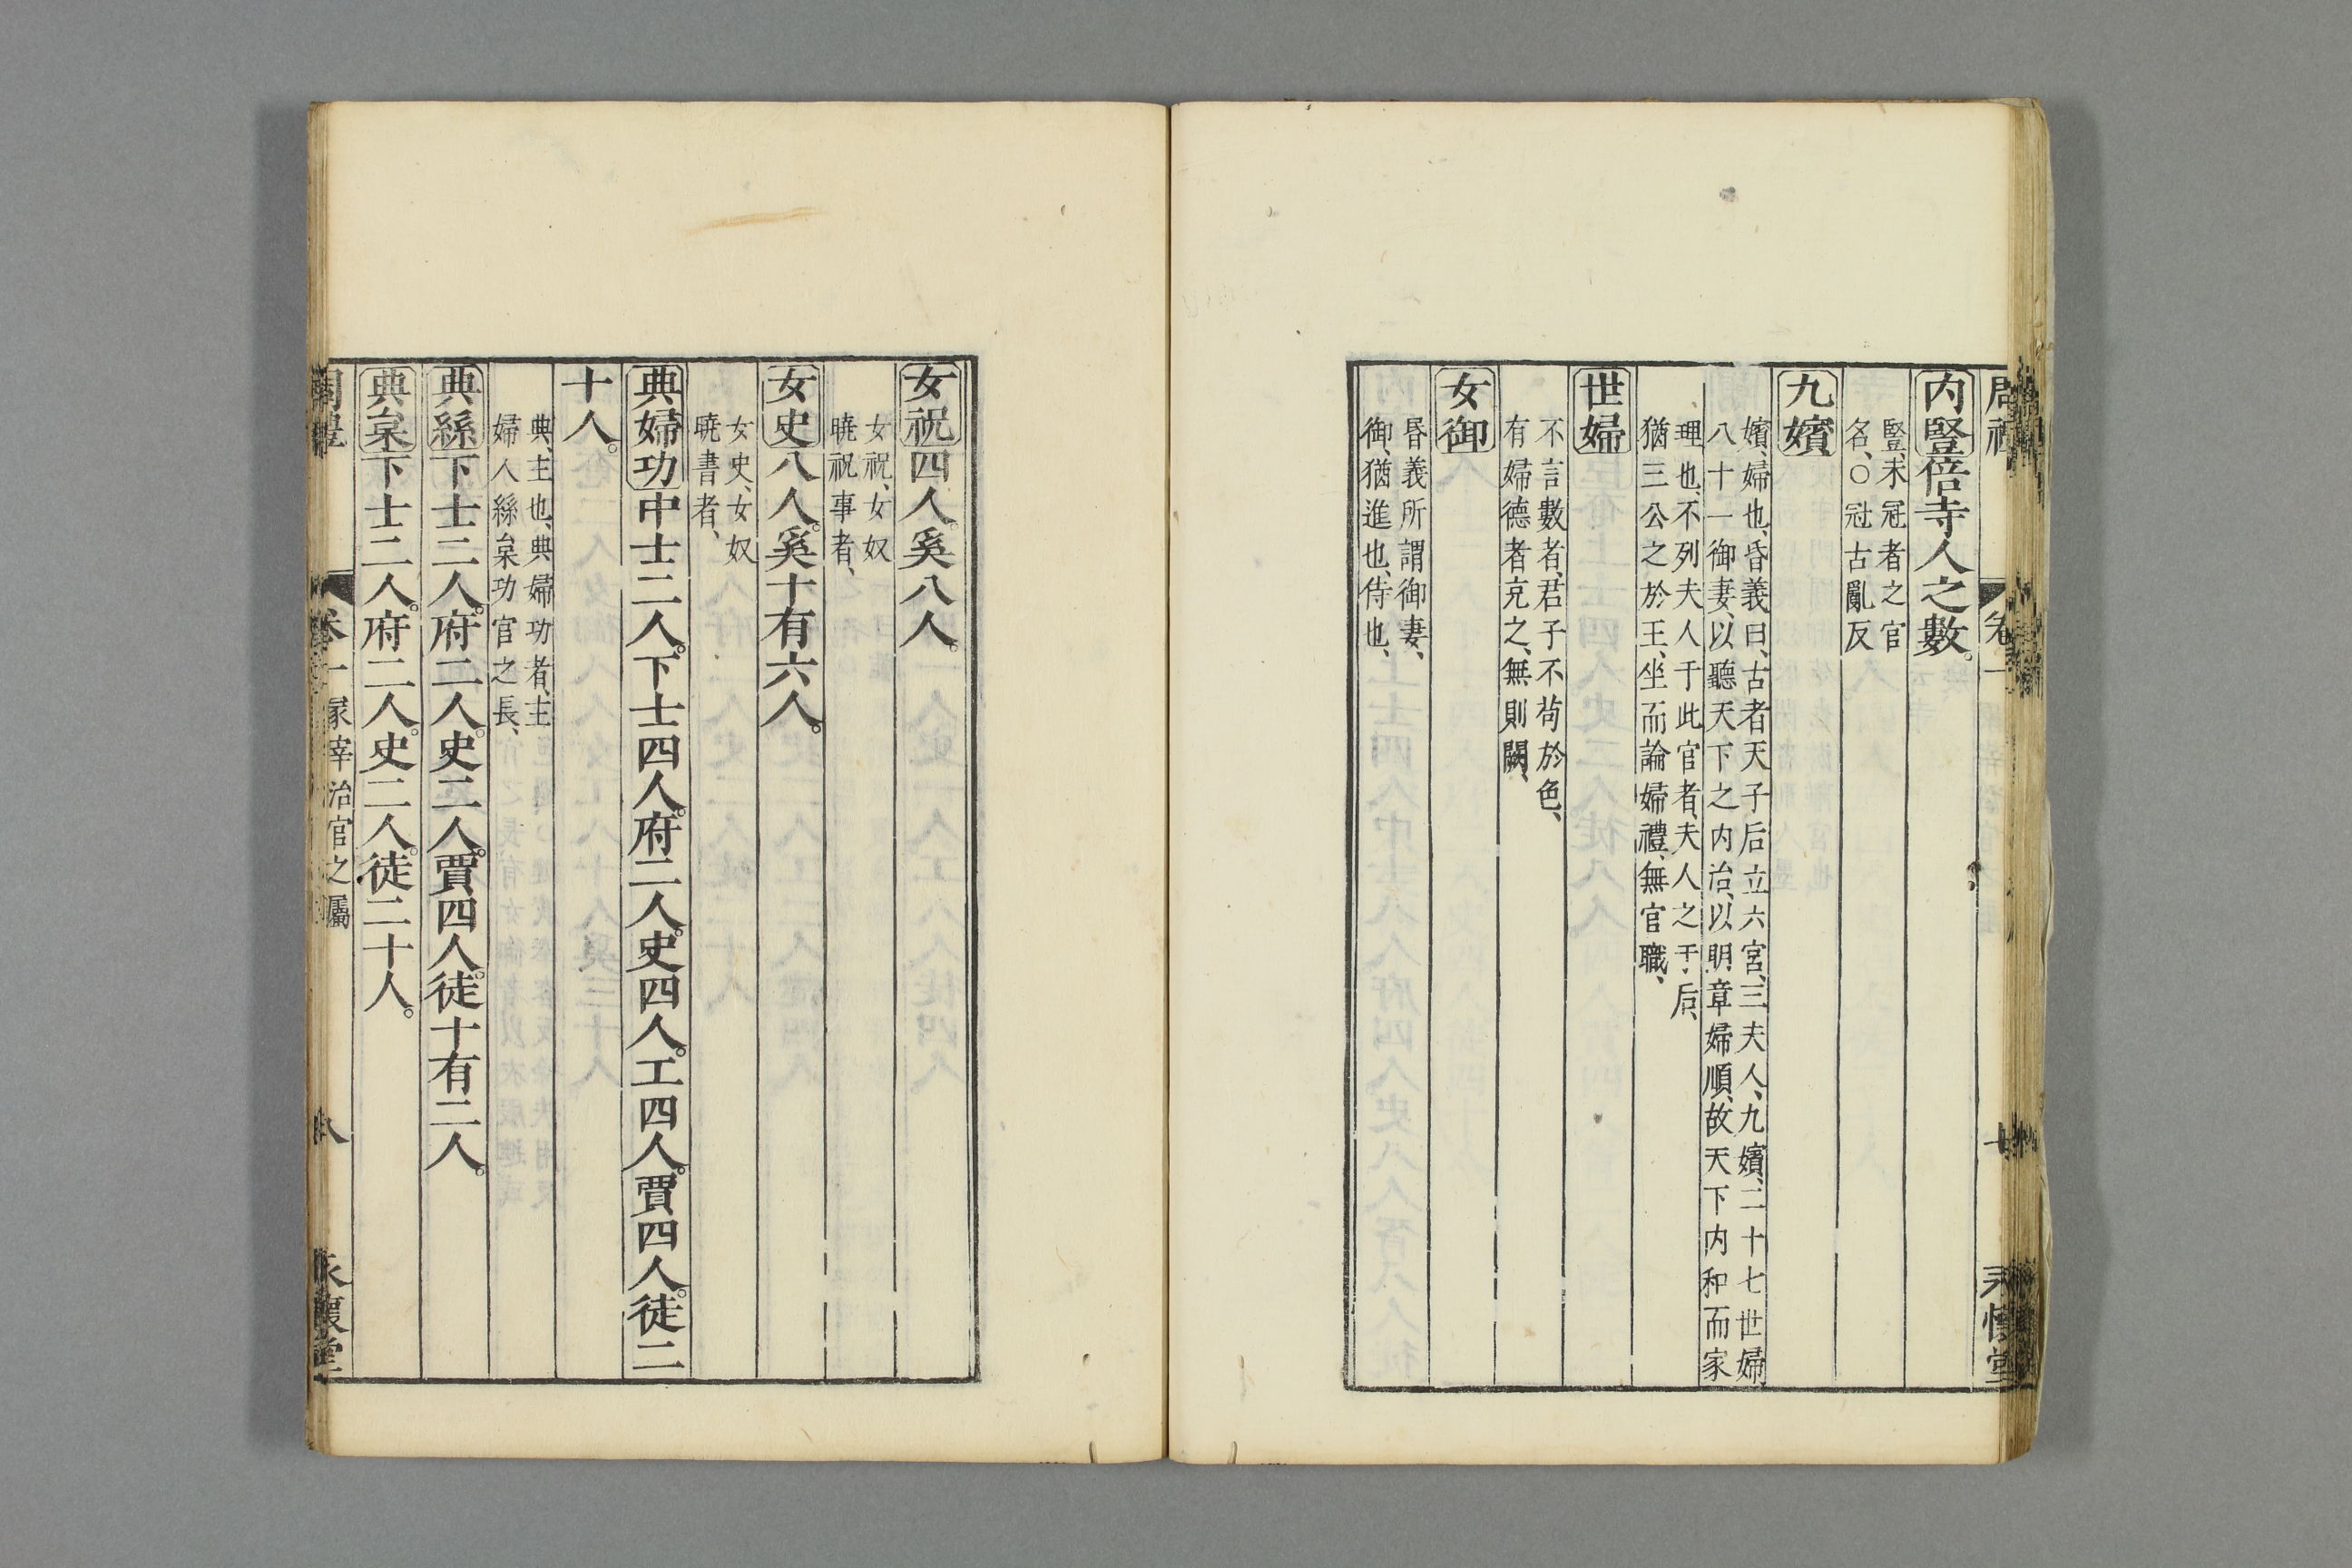 周禮 卷一 七 永懷堂
內豎倍寺人之數。
豎、未冠者之官
名、○冠古亂反
九嬪
嬪、婦也、昏義曰、古者天子后立六宮、三夫人、九嬪、二十七世婦
八十一御妻、以聽天下之內治、以明章婦順、故天下內和而家
理也、不列夫人于此官者、夫人之于后、
猶三公之於王、坐而論婦禮、無官職、
世婦
不言數者、君子不苟於色、
有婦德者充之、無則闕、
女御
昏義所謂御妻、
御、猶進也、侍也、
女祝四人。奚八人。
女祝、女奴
曉祝事者、
女史八人。奚十有六人。
女史、女奴
曉書者、
典婦功中士二人。下士四人。府二人。史四人。工四人。賈四人。徒二
十人。
典、主也、典婦功者、主
婦人絲枲功官之長、
典絲下士二人。府二人。史二人。賈四人。徒十有二人。
典枲下士二人。府二人。史二人。徒二十人。
周禮 卷一 冢宰治官之屬 八 永懷堂